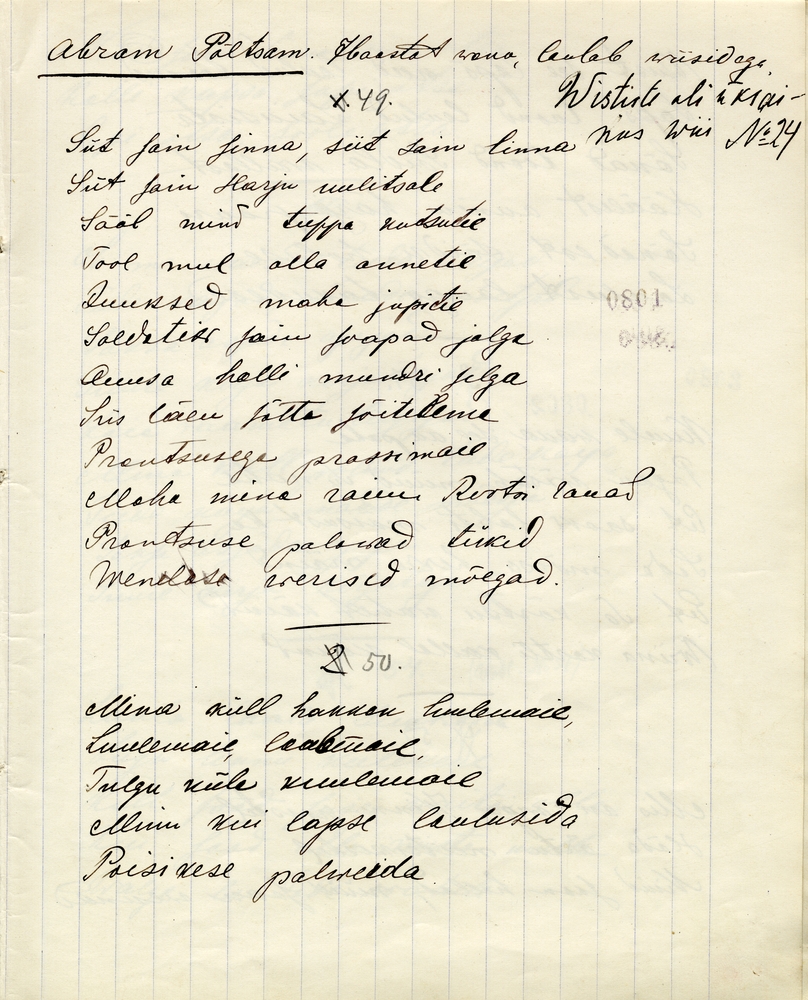 Abram Põltsam. aastat wana, laulab wiisidega.
Wististe oli ükski-
nus wiis № 24
49.
Siit sain sinna, siit sain linna
Siit sain Harju uulitsale
Sääl mind tuppa kutsutie
Tool mul alla annetie
Juuksed maha jupitie
Soldatiks sain saapad jalga
Auusa halli mundri selga
Siis läen sõtta sõitelema
Prantsusega prassimaie
Maha mina raiun Rootsi rauad
Prantsuse palawad tükid
Wenelase werised mõegad.
50.
Mina küll hakkan luulemaie,
Luulemaie, laulemaie,
Tulgu küla kuulemaie
Minu kui lapse laulusida
Poisikese palweida